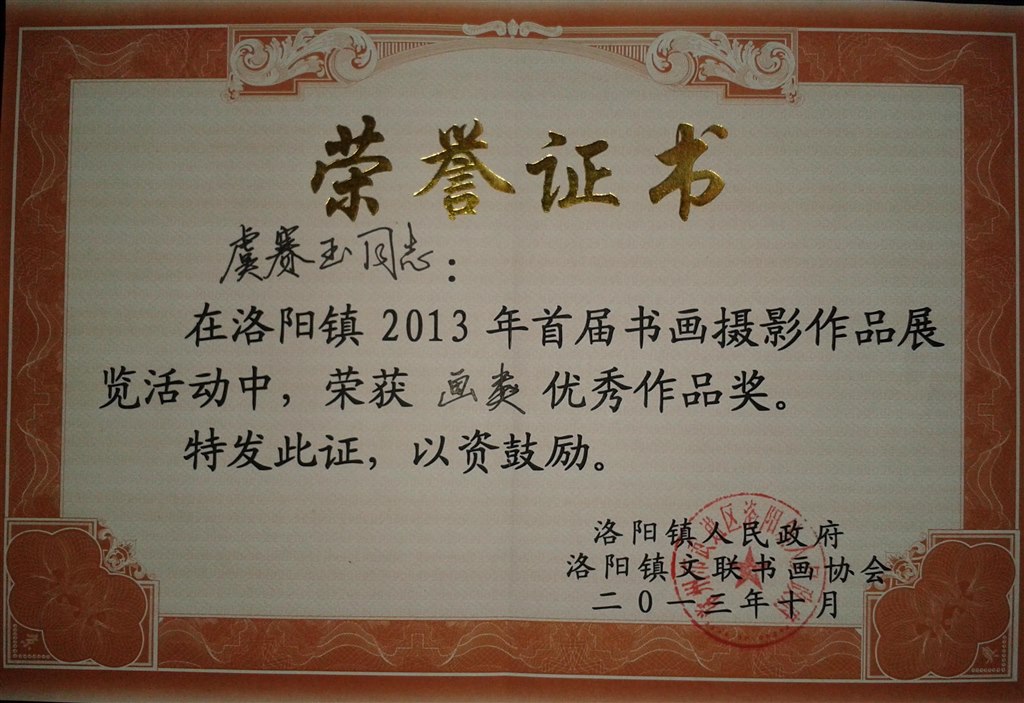 荣誉证书
虞赛玉同志：
在洛阳镇 2013 年首届书画摄影作品展
览活动中，荣获 画类 优秀作品奖。
特发此证，以资鼓励。
洛阳镇人民政府
洛阳镇文联书画协会
二〇一三年十月